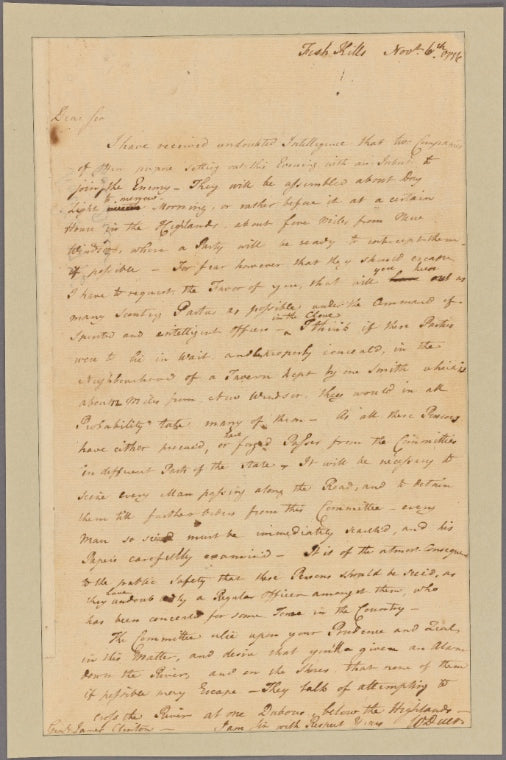 Fish Kills Novr. 6th. 1776
Dear Sir
I have received undoubted Intelligence that two Companies
of Men propose setting out this Evening with an Intent to
join the Enemy – They will be assembled about Day
Light to morrow Morning, or rather before it at a certain
House in the Highlands, about five Miles from New
Windsor, where a Party will be ready to intercept them
if possible – For fear however that they should escape
I have to request the Favor of you, that you will have out as
many Scouting Parties as possible under the Command of
Spirited and intelligent officers – in the Clove I think if these Parties
were to lie in Wait and properly conceald, in the
Neighbourhood of a Tavern kept by one Smith which is
about Miles from New Windsor, they would in all
Probability take many of them – As all these Persons
have either procured, or have forged Passes from the Committees
in different Parts of the State – It will be necessary to
seize every Man passing along the Road, and to detain
them till further orders from this Committee – every
Man so seized must be immediately search'd and his
Papers carefully examined – It is of the utmost Consequence
to the public Safety that these Persons should be seized, as
they have undoubtedly a Regular Officer amongst them, who
has been conceald for some Time in the Country –
The Committee relie upon your Prudence and Zeal,
in this Matter, and desire that you'll give an Alarm
down the River, and on the Shores that none of them
if possible may Escape – They talk of attempting to
cross the River at one Dubois, below the Highlands –
Genl. James Clinton – I am Sir with Respect Yours